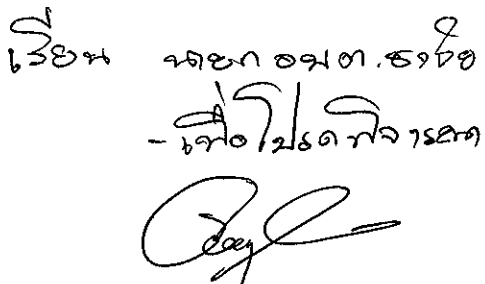 เรียน นายก อบต.ธงชัย
- เพื่อโปรดพิจารณา